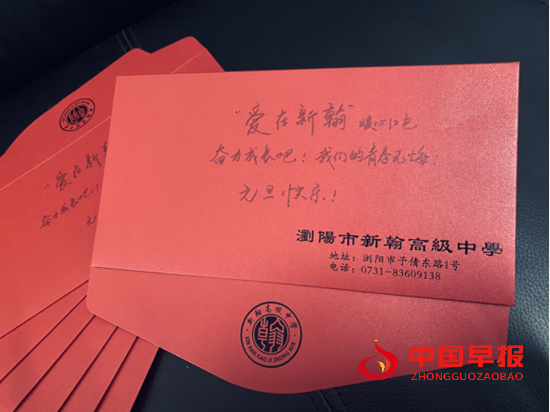 "爱在新翰"暖心红包
奋力成长吧！我们的青春无悔！
元旦快乐！
瀏陽市新翰高級中學
地址：浏阳市予倩东路1号
电话：0731-83609138
新翰高级中学
XIN HAN GAO JI ZHONG XUE
翰
"爱在新翰
奋力成长吧！
元
中国早报
ZHONGGUOZAOBAO